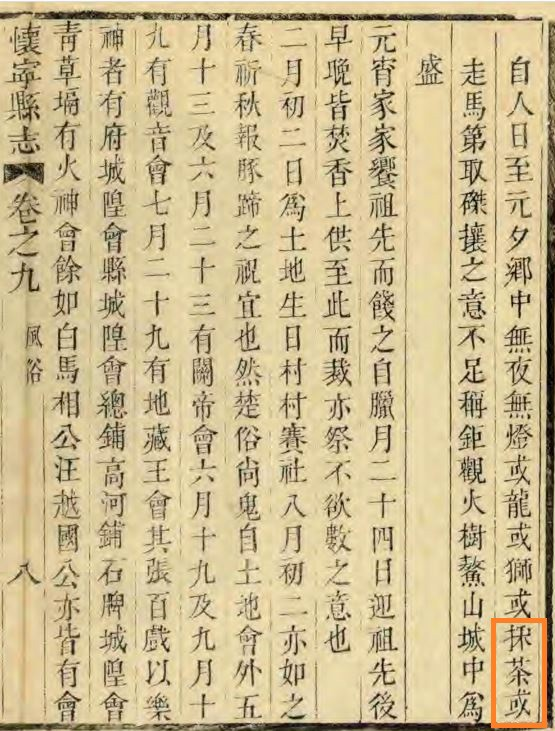 自人日至元夕鄉中無夜無燈或龍或獅或採茶或
走馬第取磔攘之意不足稱鉅觀火樹鰲山城中爲
盛
元宵家家饗祖先而餞之自臘月二十四日迎祖先後
早晚皆焚香上供至此而裁亦祭不欲數之意也
二月初二日爲土地生日村村賽社八月初二亦如之
春祈秋報豚蹄之祝宜也然楚俗尙鬼自土地會外五
月十三及六月二十三有關帝會六月十九及九月十
九有觀音會七月二十九有地藏王會其張百戲以樂
神者有府城隍會縣城隍會總鋪高河鋪石牌城隍會
靑草塥有火神會餘如白馬相公汪越國公亦皆有會
懷寧縣志 卷之九 風俗 八